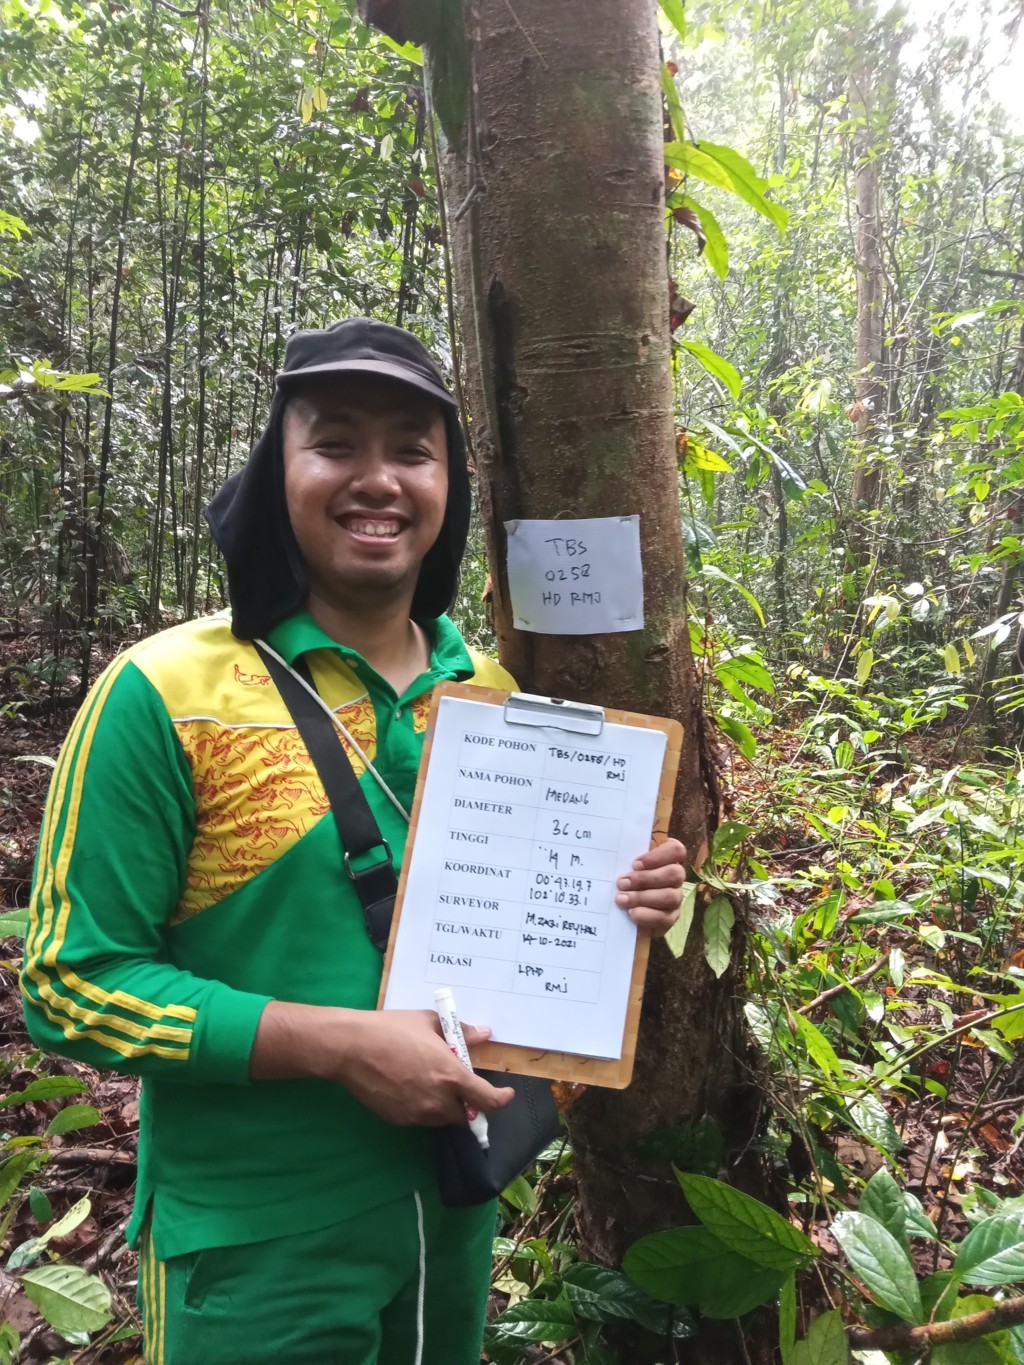 TBS
0258
HD RMJ
KODE POHON TBS/0258/HD
RMJ
NAMA POHON MEDANG
DIAMETER 36 cm
TINGGI 14 M.
KOORDINAT 00°47.19.7
102°10.33.1
SURVEYOR M. ZAKI REYHAN
TGL/WAKTU 14-10-2021
LOKASI LPHD
RMJ